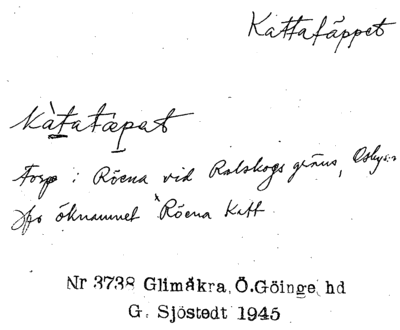 Kattatäppet
Kàtatæpat
Torp i Röena vid Ralskogs gräns,
Jfr öknamnet Röena Katt
Nr 3738 Glimåkra, Ö.Göinge hd
G. Sjöstedt 1945